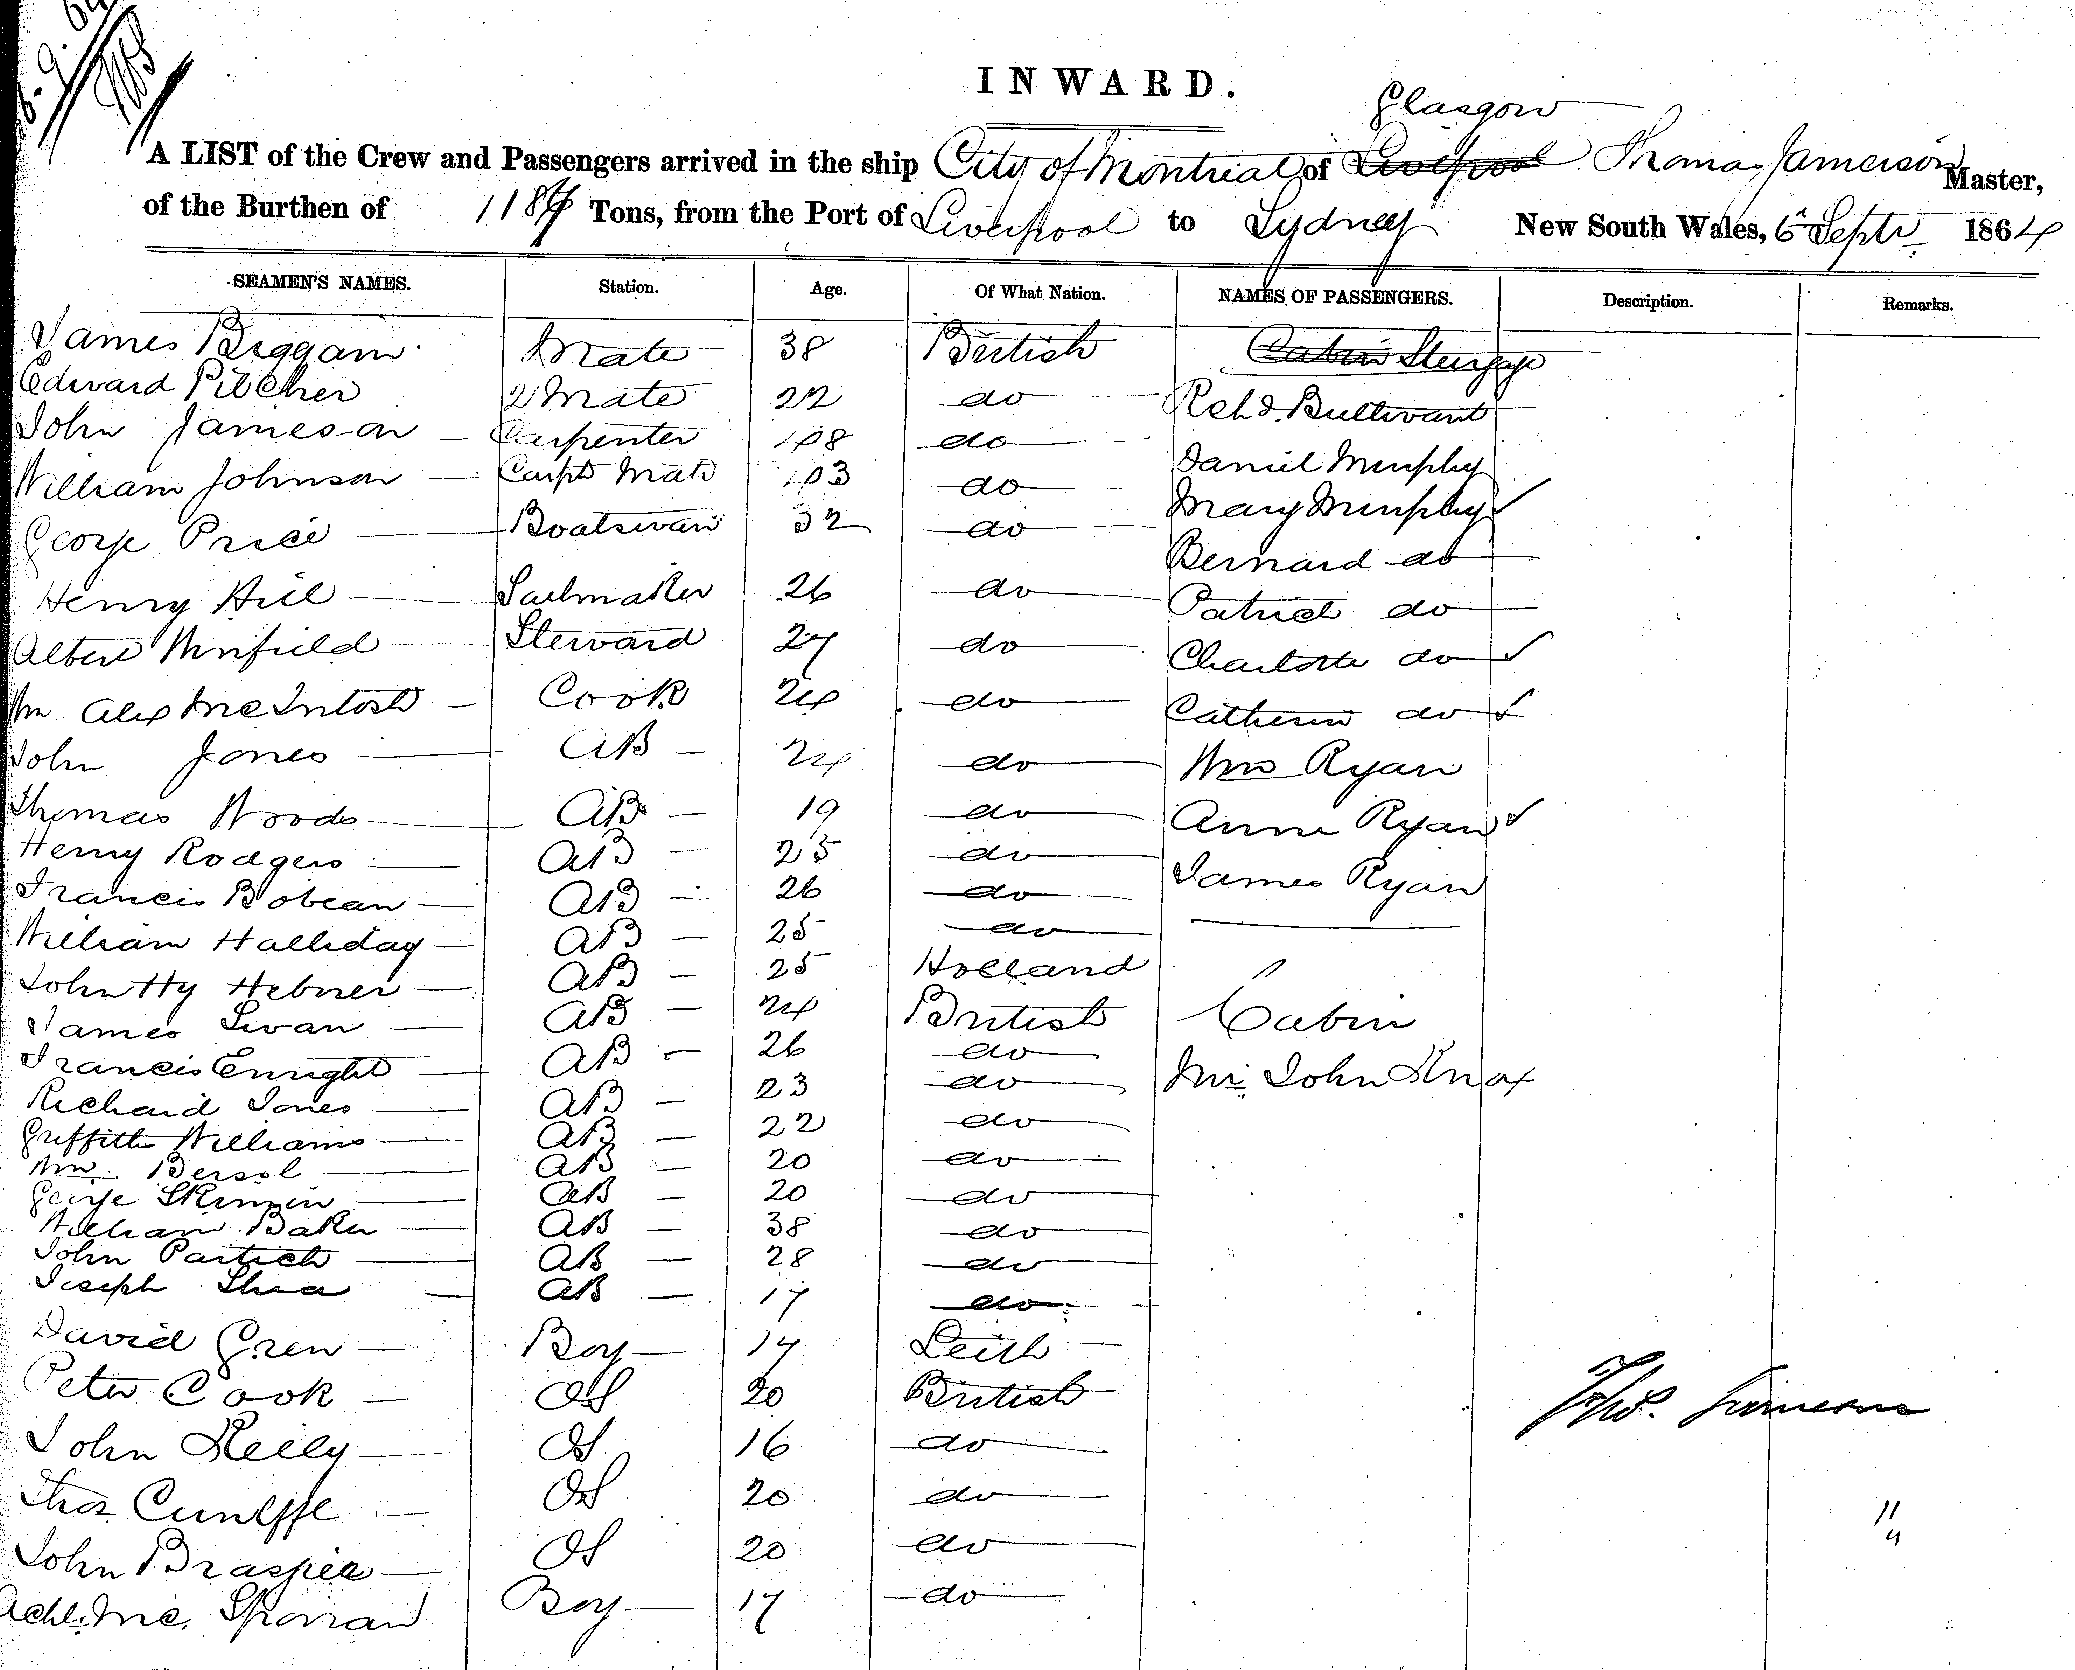 INWARD.
Glasgow
A LIST of the Crew and Passengers arrived in the ship City of Montreal of Liverpool Thomas Jamerson Master,
of the Burthen of 1187 Tons, from the Port of Liverpool to Sydney New South Wales, 6th Septr 1864
SEAMEN'S NAMES. Station. Age. Of What Nation. NAMES OF PASSENGERS. Description. Remarks.
James Biggam Mate 38 British Cabin Steerage
Edward Pilcher 2 Mate 22 do Richd. Bullivant
John Jameson Carpenter do
William Johnson Carpts Mate do Daniel Murphy
George Price Boatswain 32 do Mary Murphy ✓
Bernard do
Henry Hill Sailmaker 26 do Patrick do
Albert Winfield Steward 27 do Charlotte do ✓
Wm Alex McIntosh Cook 24 do Catherine do ✓
John Jones AB 24 do Wm Ryan
Thomas Woods AB 19 do Anne Ryan ✓
Henry Rodgers AB 25 do
Francis Bobean AB 26 do James Ryan
William Halliday AB 25 do
John Hy Hebner AB 25 Holland
James Swan AB 24 British Cabin
Francis Enright AB 26 do
Richard Jones AB 23 do Mr. John Knox
Griffith Williams AB 22 do
Wm. Bersol AB 20 do
George AB 20 do
William Baker AB 38 do
John Partich AB 28 do
Joseph Shea AB 17 do
David Gren Boy 17 Leith
Peter Cook OS 20 British
John Reily OS 16 do
Thos Cunlffe OS 20 do
John OS 20 do
Achd. Mc. Sporran Boy 17 do